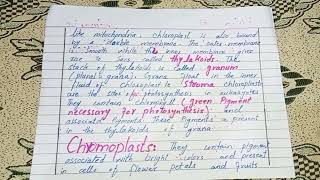 Like mitochondria chloroplast is also bound
by a double membrane. The outer membrane
is smooth while the inner membrane give
rise to sacs called thylakoids. The
stack of thylakoids is called granum
(plural = grana). Grana float in the inner
fluid of chloroplast i-e Stroma chloroplasts
are the sites of photosynthesis in eukaryotes
They contain chlorophyll (green pigment
necessary for photosynthesis) and
associated pigments These pigments is present
in the thylakoids of grana.
Chromoplasts: They contain pigment
associated with bright colors and present
in cells of flower petals and fruits